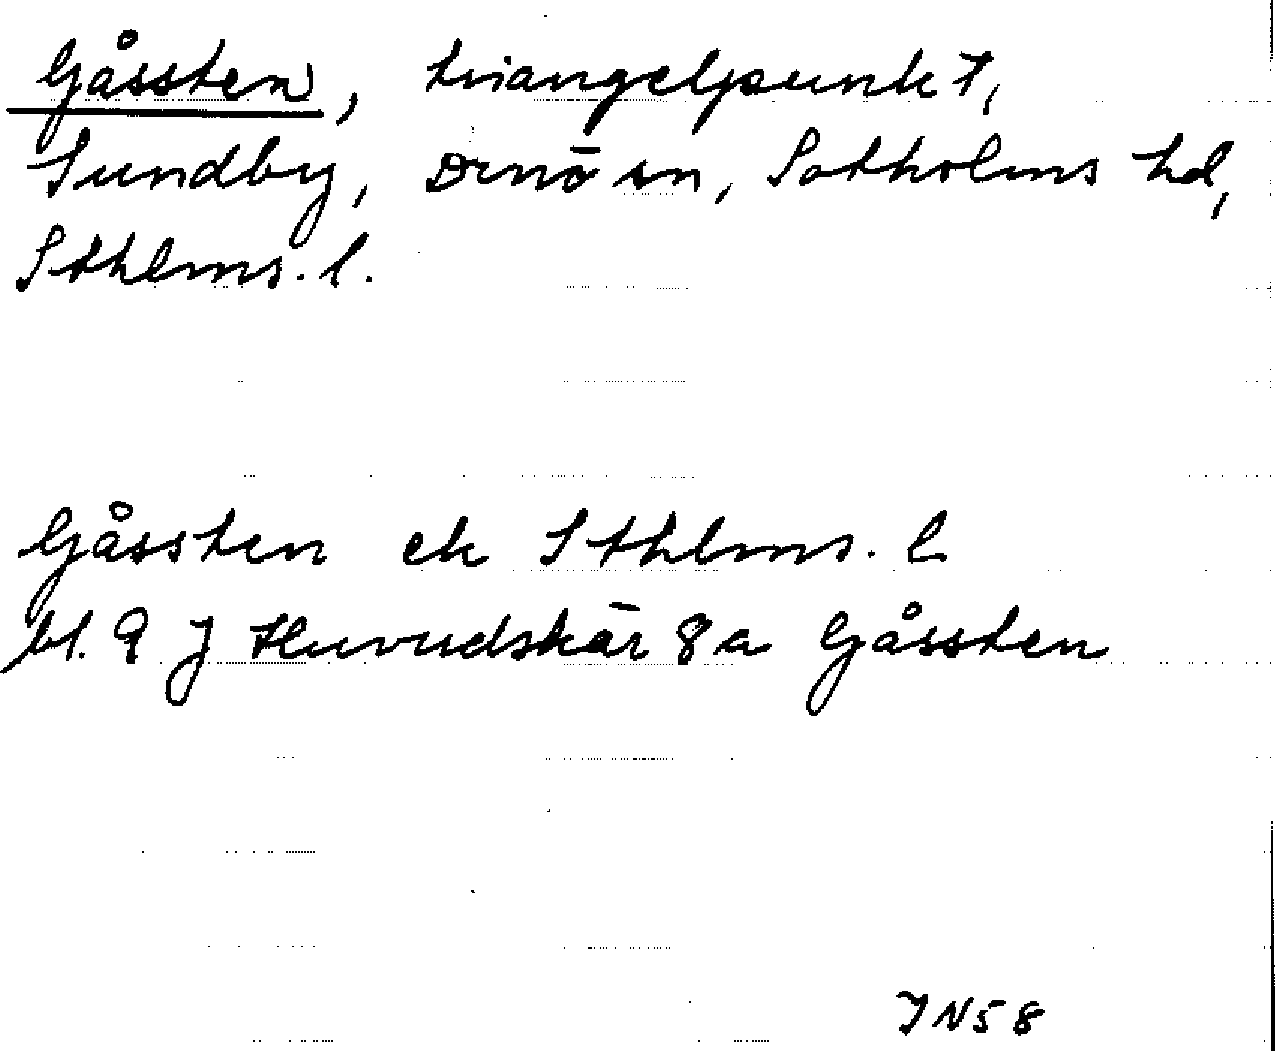 Gåssten, triangelpunkt,
Sundby, Ornö sn, Sotholms hd,
Sthlms. l.
Gåssten ek Sthlms. l
bl. 9 J Huvudskär 8a Gåssten
JN58